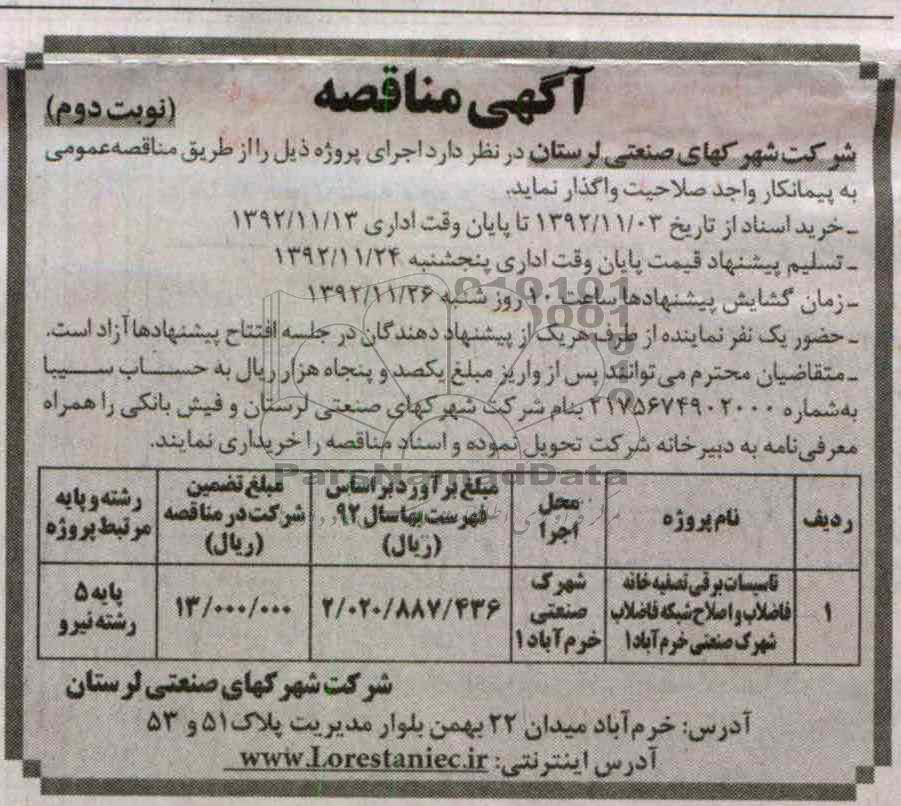 آگهی مناقصه
(نوبت دوم)
شرکت شهرکهای صنعتی لرستان در نظر دارد اجرای پروژه ذیل را از طریق مناقصه عمومی
به پیمانکار واجد صلاحیت واگذار نماید.
ـ خرید اسناد از تاریخ ۱۳۹۲/۱۱/۰۳ تا پایان وقت اداری ۱۳۹۲/۱۱/۱۳
ـ تسلیم پیشنهاد قیمت پایان وقت اداری پنجشنبه ۱۳۹۲/۱۱/۲۴
ـ زمان گشایش پیشنهادها ساعت ۱۰ روز شنبه ۱۳۹۲/۱۱/۲۶
ـ حضور یک نفر نماینده از طرف هریک از پیشنهاد دهندگان در جلسه افتتاح پیشنهادها آزاد است.
ـ متقاضیان محترم می توانند پس از واریز مبلغ یکصد و پنجاه هزار ریال به حساب سیبا
به شماره ۲۱۷۵۶۷۴۹۰۲۰۰۰ بنام شرکت شهرکهای صنعتی لرستان و فیش بانکی را همراه
معرفی نامه به دبیرخانه شرکت تحویل نموده و اسناد مناقصه را خریداری نمایند.
ParsNamadData
ردیف
نام پروژه
محل
اجرا
مبلغ برآورد بر اساس
فهرست بها سال ۹۲
(ریال)
مبلغ تضمین
شرکت در مناقصه
(ریال)
رشته و پایه
مرتبط پروژه
۱
تاسیسات برقی تصفیه خانه
فاضلاب و اصلاح شبکه فاضلاب
شهرک صنعتی خرم آباد۱
شهرک
صنعتی
خرم آباد ۱
۲/۰۲۰/۸۸۷/۴۳۶
۱۳/۰۰۰/۰۰۰
پایه ۵
رشته نیرو
شرکت شهرکهای صنعتی لرستان
آدرس: خرم آباد میدان ۲۲ بهمن بلوار مدیریت پلاک ۵۱ و ۵۳
آدرس اینترنتی: www.Lorestaniec.ir